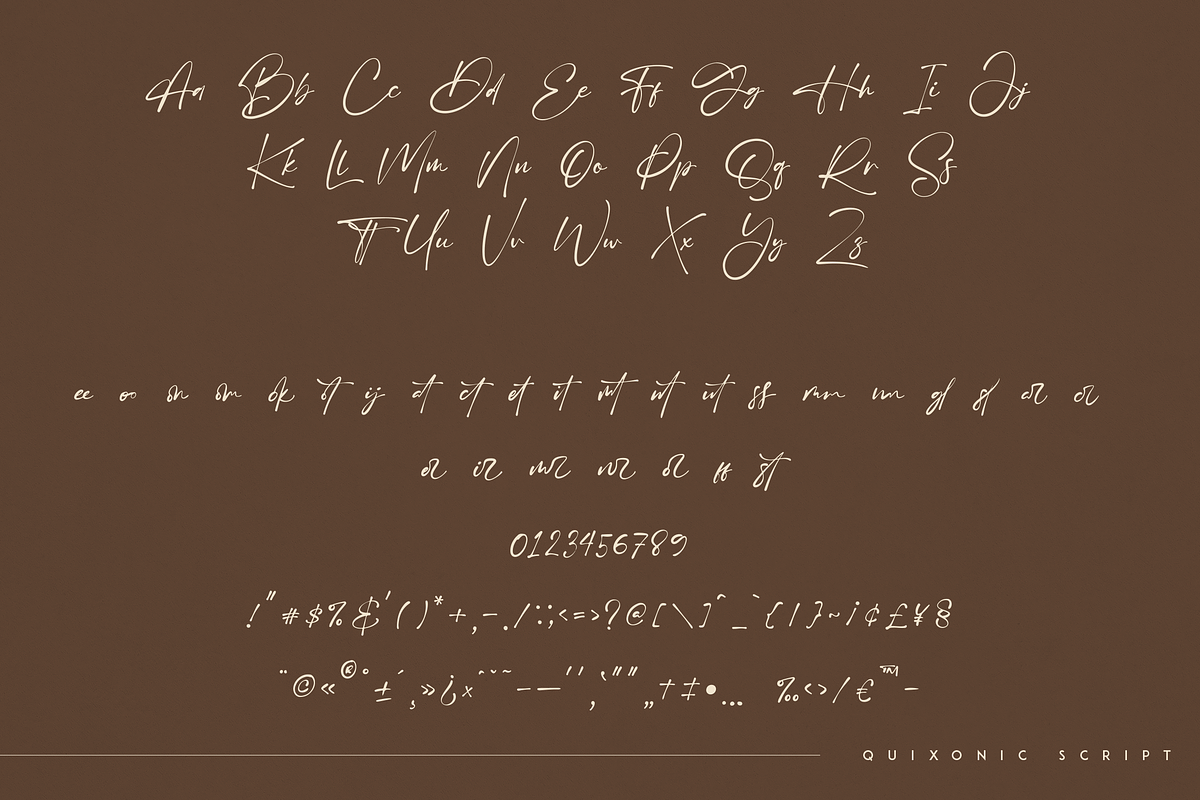 Aa Bb Cc Dd Ee Ff Gg Hh Ii Jj
Kk Ll Mm Nn Oo Pp Qq Rr Ss
Tt Uu Vv Ww Xx Yy Zz
ee oo on om ok ot ij at ct et it mt nt ut ss mm nm gl sl ar cr
er ir mr nr or ff st
0123456789
!"#$%&'()*+,-./:;<=>?@[\]^_`{|}~¡¢£¥§
¨©«®°±´¸»¿×ˆ˘˜–—‘’‚“”„†‡•… ‰‹›/€™−
QUIXONIC SCRIPT